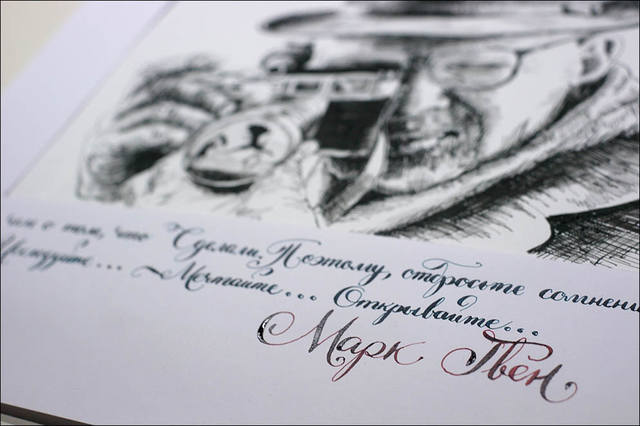 чем о том, что Сделали. Поэтому, отбросьте сомнени
... Мечтайте... Открывайте...
Марк Твен